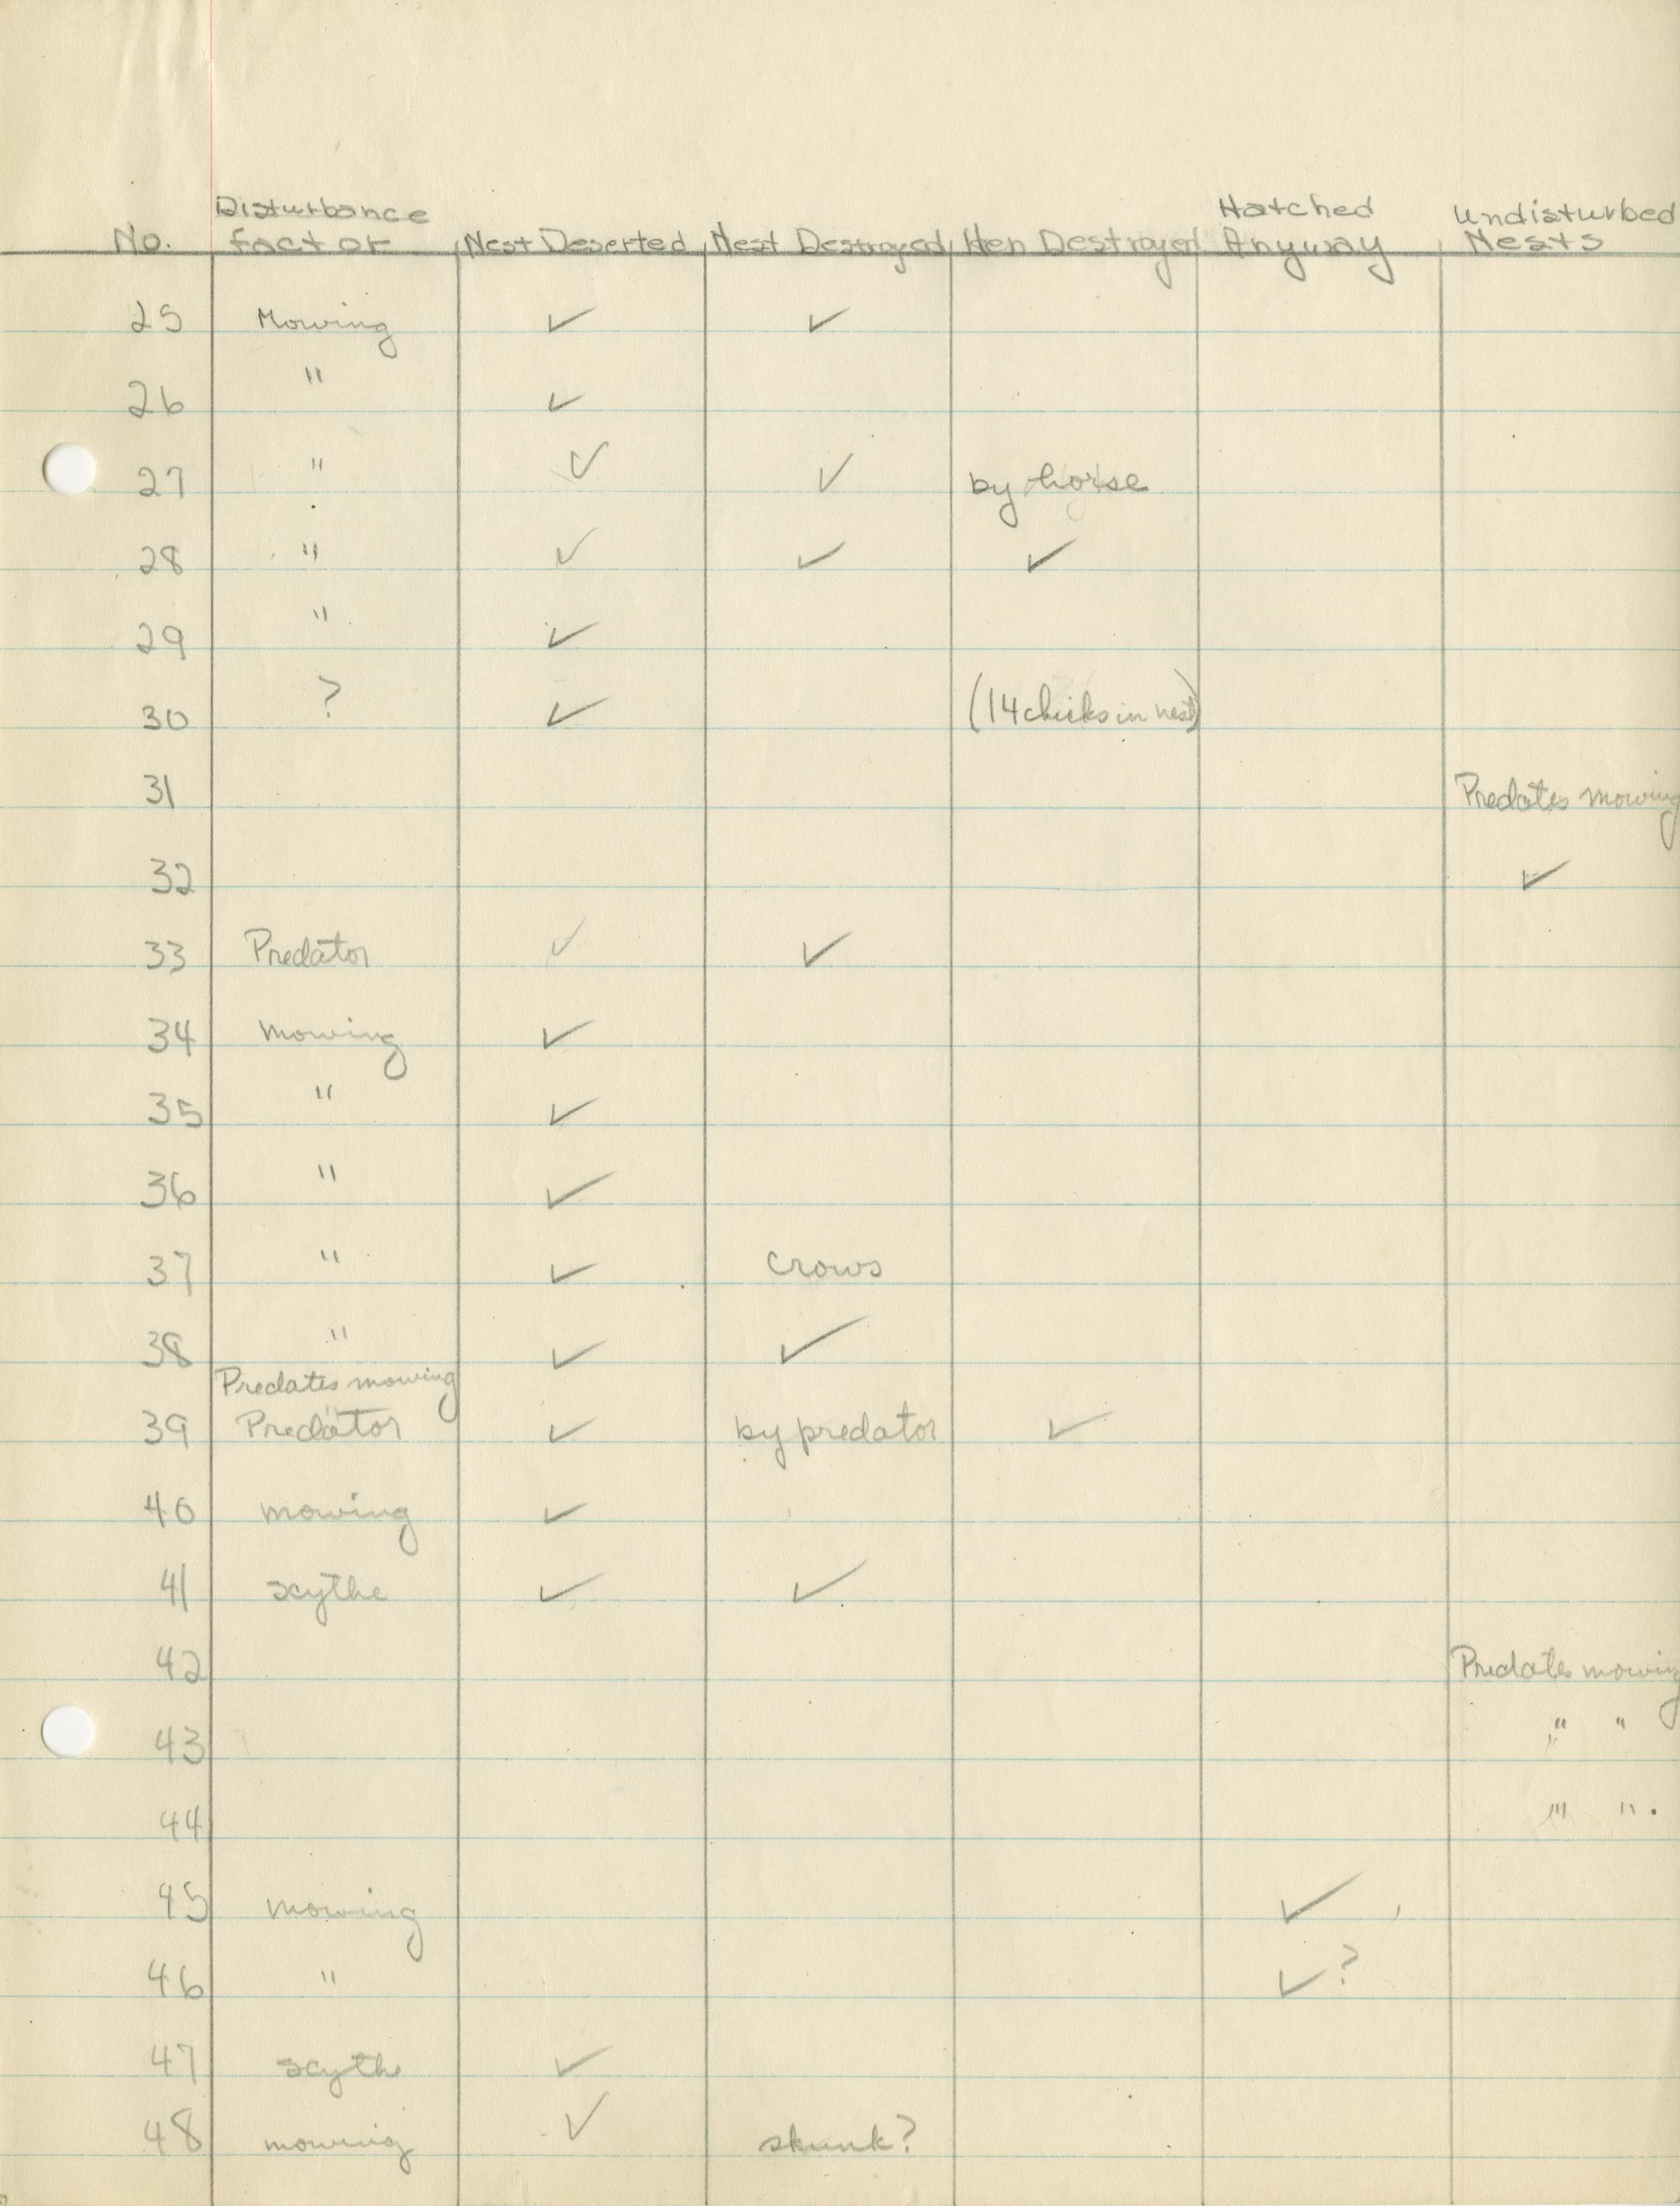 No. Disturbance factor Nest Deserted Nest Destroyed Hen Destroyed Hatched Anyway Undisturbed Nests
25 Mowing ✓ ✓
26 " ✓
27 " ✓ ✓ by horse
28 " ✓ ✓ ✓
29 " ✓
30 ? ✓ (14 chicks in nest)
31 Predates mowing
32 ✓
33 Predator ✓ ✓
34 mowing ✓
35 " ✓
36 " ✓
37 " ✓ crows
38 " ✓ ✓
Predates mowing
39 Predator ✓ by predator ✓
40 mowing ✓
41 scythe ✓ ✓
42 Predates mowing
43 " "
44 " "
45 mowing ✓
46 " ✓?
47 scythe ✓
48 mowing ✓ skunk?